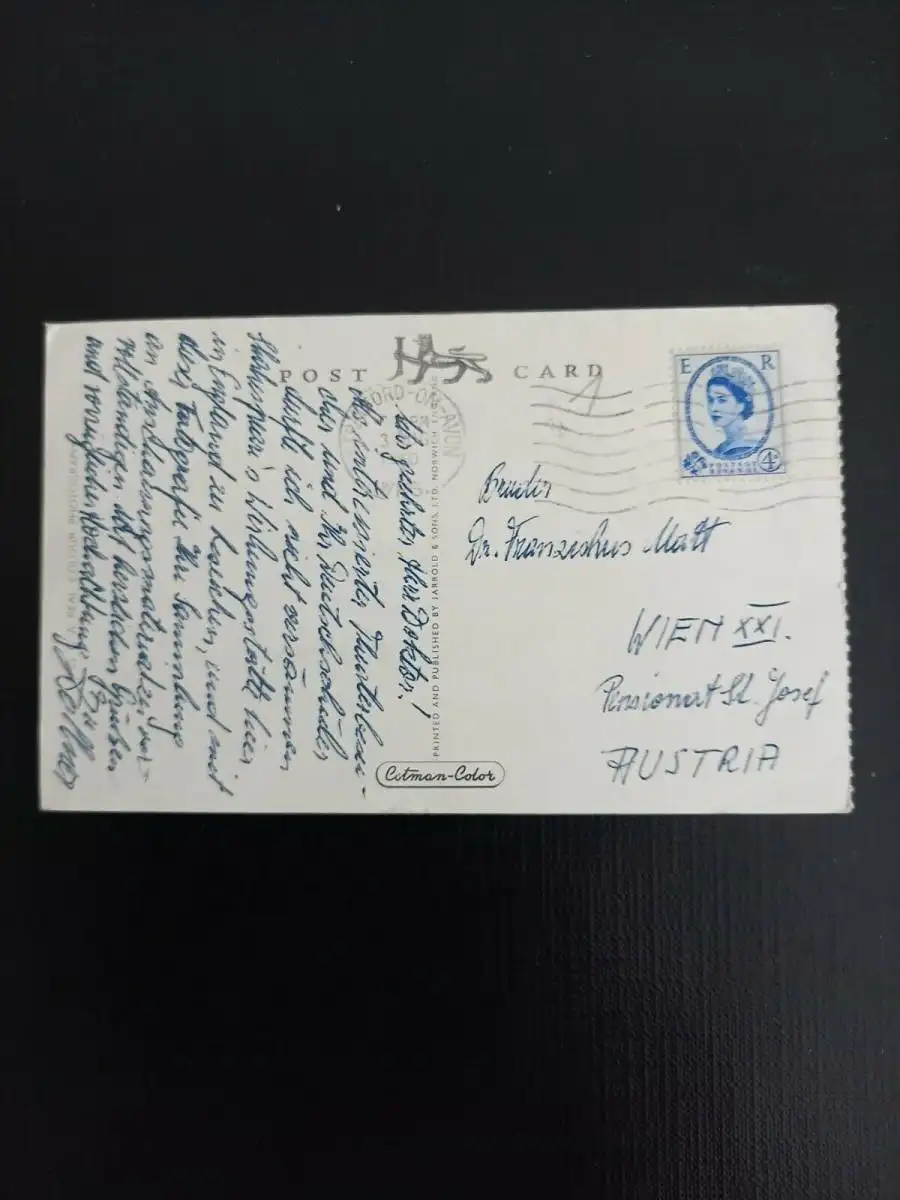 POST CARD
FORD-ON-AVON
E R
POSTAGE
4D
Sehr geehrter Herr Doktor!
Als
und Ihr Deutschschüler
darf ich nicht versäumen
Shakespeare's Wirkungsstätte hier
in England zu besuchen, und mit
dieser Farbgrafie Ihre Sammlung
an Anschauungsmaterial zu ver-
vollständigen. Mit herzlichen Grüßen
und vorzüglicher Hochachtung
PRINTED AND PUBLISHED BY JARROLD & SONS, LTD. NORWICH
Cotman-Color
Bruder
Dr. Franziskus Matt
WIEN XXI.
Pensionat St. Josef
AUSTRIA